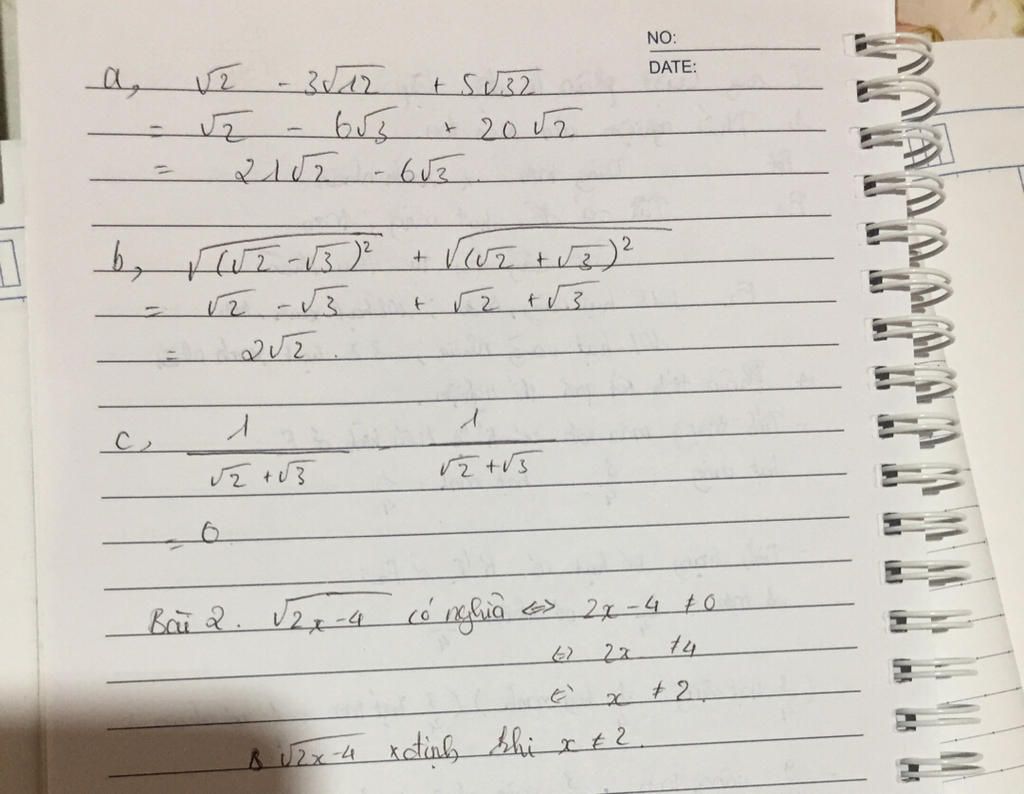 NO:
DATE:
a, √2 - 3√12 + 5√32
= √2 - 6√3 + 20√2
= 21√2 - 6√3.
b, √(√2 - √3)² + √(√2 + √3)²
= √2 - √3 + √2 + √3
= 2√2.
c, 1/(√2 + √3) - 1/(√2 + √3)
= 0
Bài 2. √2x-4 có nghĩa ⇔ 2x - 4 ≠ 0
⇔ 2x ≠ 4
⇔ x ≠ 2
√2x-4 xđịnh khi x ≠ 2.